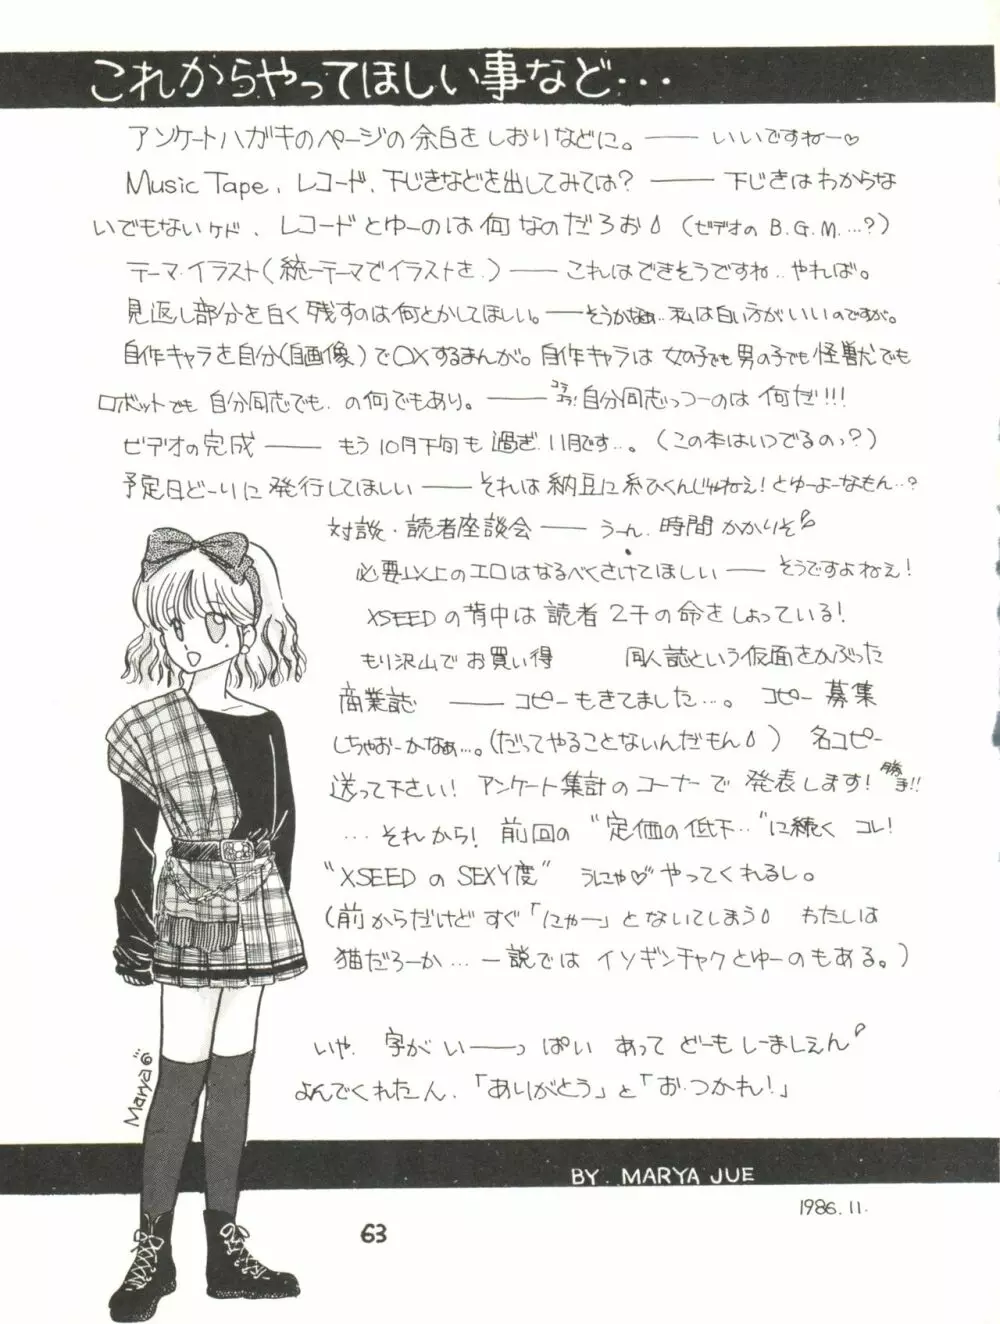 これからやってほしい事など・・・
アンケートハガキのページの余白をしおりなどに。―― いいですねー♡
Music Tape、レコード、下じきなどを出してみては? ―― 下じきはわからな
いでもないケド、レコードとゆーのは何なのだろお (ビデオの B.G.M.…?)
テーマ・イラスト(統一テーマでイラストを.) ―― これはできそうですね..やれば。
見返し部分を白く残すのは何とかしてほしい。――そうかなぁ..私は白い方がいいのですが。
自作キャラを自分(自画像)で〇×するまんが。自作キャラは女の子でも男の子でも怪獣でも
ロボットでも 自分同志でも、の何でもあり。―― コラコラ!自分同志っつーのは何だ!!!
ビデオの完成 ―― もう10月下旬も過ぎ、11月です…。(この本はいつでるのっ?)
予定日どーりに発行してほしい ―― それは納豆に糸ひくんじゃねえ!とゆーよーなもん…?
対談・読者座談会 ―― うーん、時間かかりそ
必要以上のエロはなるべくさけてほしい ―― そうですよねぇ!
XSEEDの背中は読者2千の命をしょっている!
もり沢山でお買い得 同人誌という仮面をかぶった
商業誌 ―― コピーもきてました…。 コピー募集
しちゃおーかなぁ…。(だってやることないんだもん) 名コピー
送って下さい! アンケート集計のコーナーで発表します! 勝手!!
…それから! 前回の “定価の低下…”に続く コレ!
“XSEEDのSEXY度” うにゃ♡やってくれるし。
(前からだけどすぐ「にゃー」とないてしまう わたしは
猫だろーか… 一説ではイソギンチャクとゆーのもある。)
いや、字がい――っぱい あって どーもしーましぇん
よんでくれたん、「ありがとう」と「お・つかれ!」
Marya
BY. MARYA JUE
1986.11.
63